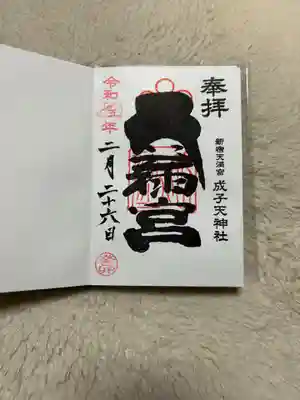 奉拝
新宿天満宮 成子天神社
天満宮
令和五年
二月二十六日